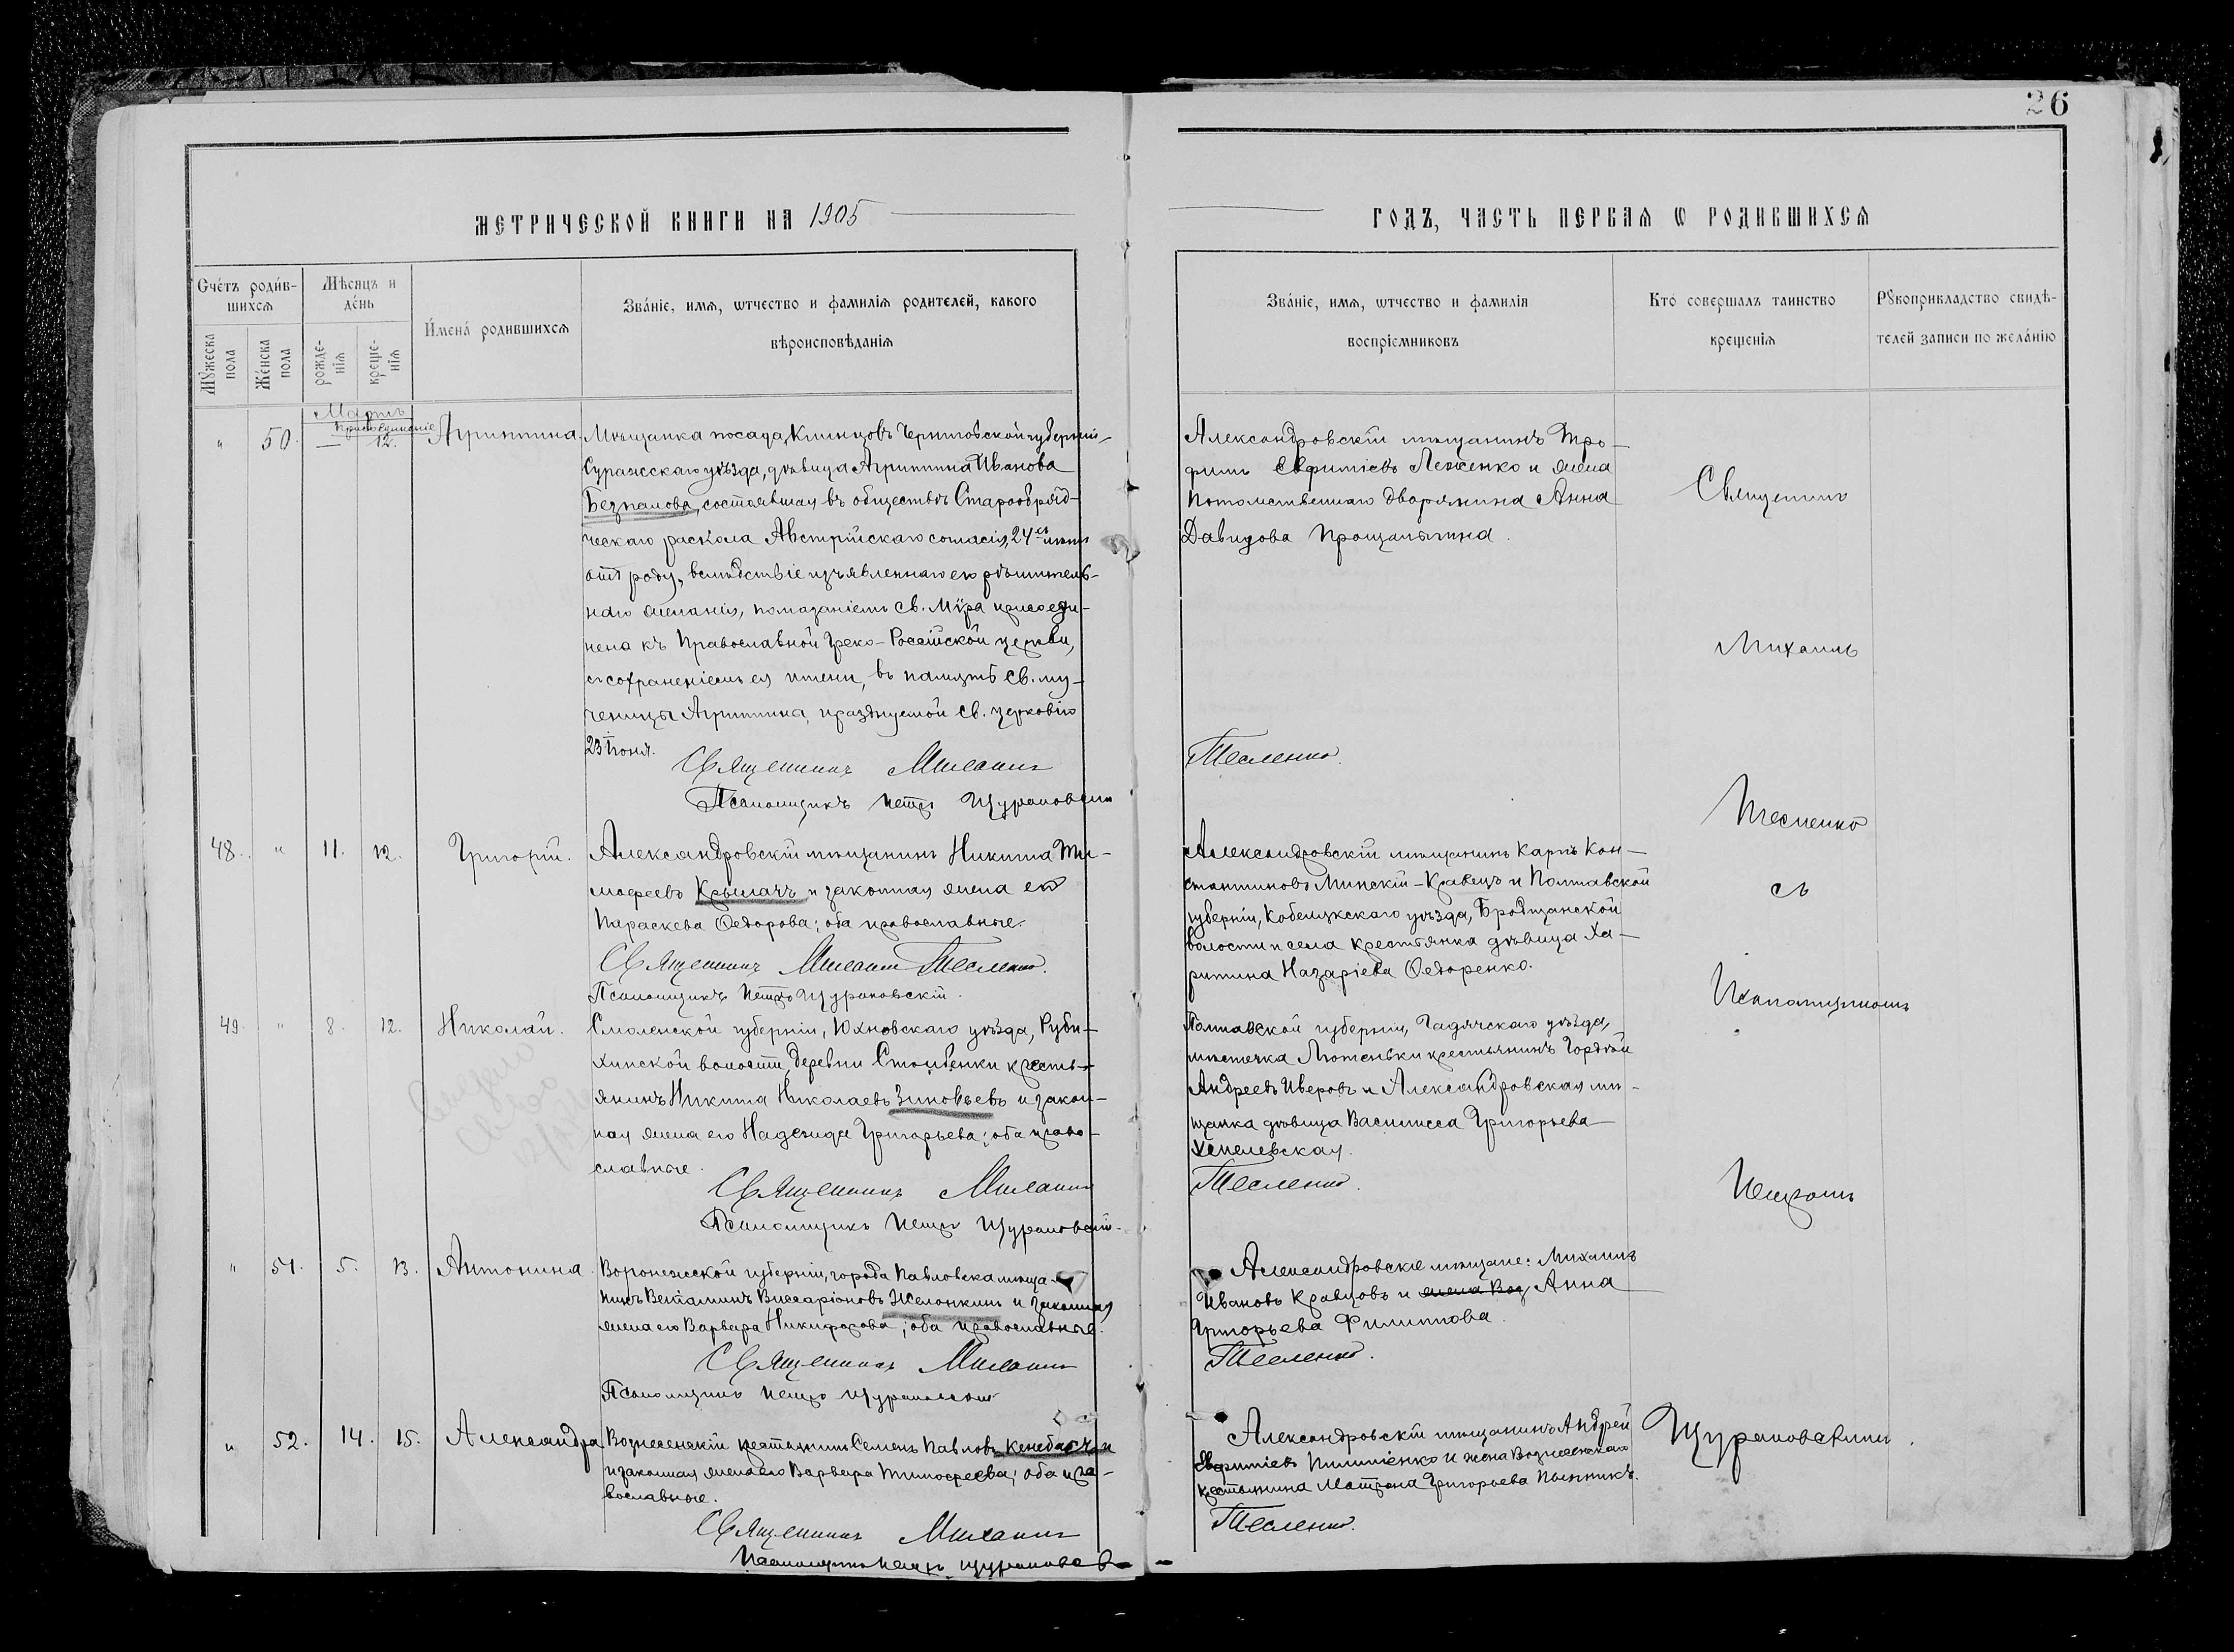 26
МЕТРИЧЕСКОЙ КНИГИ НА 1905
ГОДЪ, ЧАСТЬ ПЕРВАЯ Ѡ РОДИВШИХСЯ
Счетъ родив-
шихся
Мужеска пола
Женска пола
Мѣсяцъ и день
рожде-
нія
креще-
нія
Имена родившихся
Званіе, имя, ѡтчество и фамилія родителей, какого
вѣроисповѣданія
Званіе, имя, ѡтчество и фамилія
воспріемниковъ
Кто совершалъ таинство
крещенія
Рꙋкоприкладство свидѣ-
телей записи по желанію
Мартъ
Присоединеніе
" 50. — 12. Агриппина.
Мѣщанка посада Клинцовъ Черниговской губерніи,
Суражскаго уѣзда, дѣвица Агриппина Иванова
Безпалова, состоявшая въ обществѣ Старообряд-
ческаго раскола Австрійскаго согласія, 24хъ лѣтъ
отъ роду, вслѣдствіе изъявленнаго ею рѣшитель-
наго желанія, помазаніемъ Св. Мѵра присоеди-
нена къ Православной Греко-Россійской церкви,
съ сохраненіемъ ея имени, въ память Св. му-
ченицы Агриппина, празднуемой Св. церковію
23 Іюня.
Священникъ Михаилъ
Псаломщикъ Петръ Щурановскій
Александровскій мѣщанинъ Тро-
фимъ Евфиміевъ Леженко и жена
Потомственнаго дворянина Анна
Давидова Прощалыгина.
Тесленко.
48. " 11. 12. Григорій.
Александровскій мѣщанинъ Никита Ти-
мофеевъ Крымачъ и законная жена его
Параскева Ѳедорова; оба православные.
Священникъ Михаилъ Тесленко.
Псаломщикъ Петръ Щурановскій.
Александровскій мѣщанинъ Карпъ Кон-
стантиновъ Минскій-Кравецъ и Полтавской
губерніи, Кобелякскаго уѣзда, Бродщанской
волости и села крестьянка дѣвица Ха-
ритина Назаріева Ѳедоренко.
49. " 8. 12. Николай.
Смоленской губерніи, Юхновскаго уѣзда, Руби-
хинской волости, деревни Столбенки кресть-
янинъ Никита Николаевъ Зиновьевъ и закон-
ная жена его Надежда Григорьева; оба право-
славные.
Священникъ Михаилъ
Псаломщикъ Петръ Щурановскій.
Полтавской губерніи, Гадячскаго уѣзда,
мѣстечка Лютеньки крестьянинъ Гордѣй
Андреевъ Иверовъ и Александровская мѣ-
щанка дѣвица Василисса Григорьева
Хемелевская.
Тесленко.
" 51. 5. 13. Антонина.
Воронежской губерніи, города Павловска мѣща-
нинъ Веніаминъ Виссаріоновъ Желонкинъ и законная
жена его Варвара Никифорова; оба православные.
Священникъ Михаилъ
Псаломщикъ Петръ Щурановскій
Александровскіе мѣщане: Михаилъ
Ивановъ Кравцовъ и жена Воз Анна
Григорьева Филиппова.
Тесленко.
" 52. 14. 15. Александра
Вознесенскій крестьянинъ Семенъ Павловъ
и законная жена его Варвара Тимофеева; оба пра-
вославные.
Священникъ Михаилъ
Псаломщикъ Петръ Щурановск
Александровскій мѣщанинъ Андрей
Евфиміевъ Пилипенко и жена Вознесенскаго
крестьянина Матрона Григорьева Пынникъ.
Тесленко.
Священникъ
Михаилъ
Тесленко
съ
Псаломщикомъ
Петромъ
Щурановскимъ.